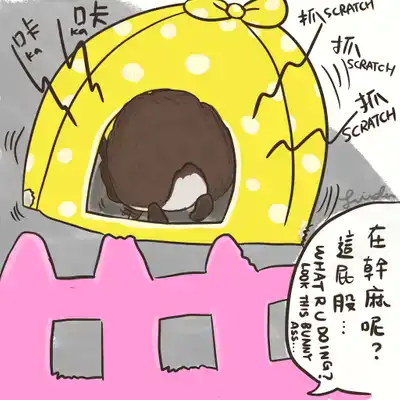 咔
KA
咔
KA
抓
SCRATCH
抓
SCRATCH
抓
SCRATCH
在幹麻呢?
這屁股...
WHAT R U DOING?
LOOK THIS BUNNY
ASS...